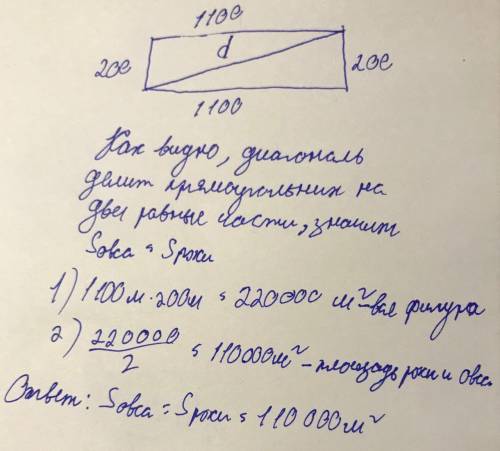 1100
d
200 200
1100
Как видно, диагональ
делит прямоугольник на
две равные части, значит
Sовса = Sржи
1) 1100м · 200м = 220000 м² - вся фигура
2) 220000/2 = 110000м² - площадь ржи и овса
Ответ: Sовса = Sржи = 110 000м²